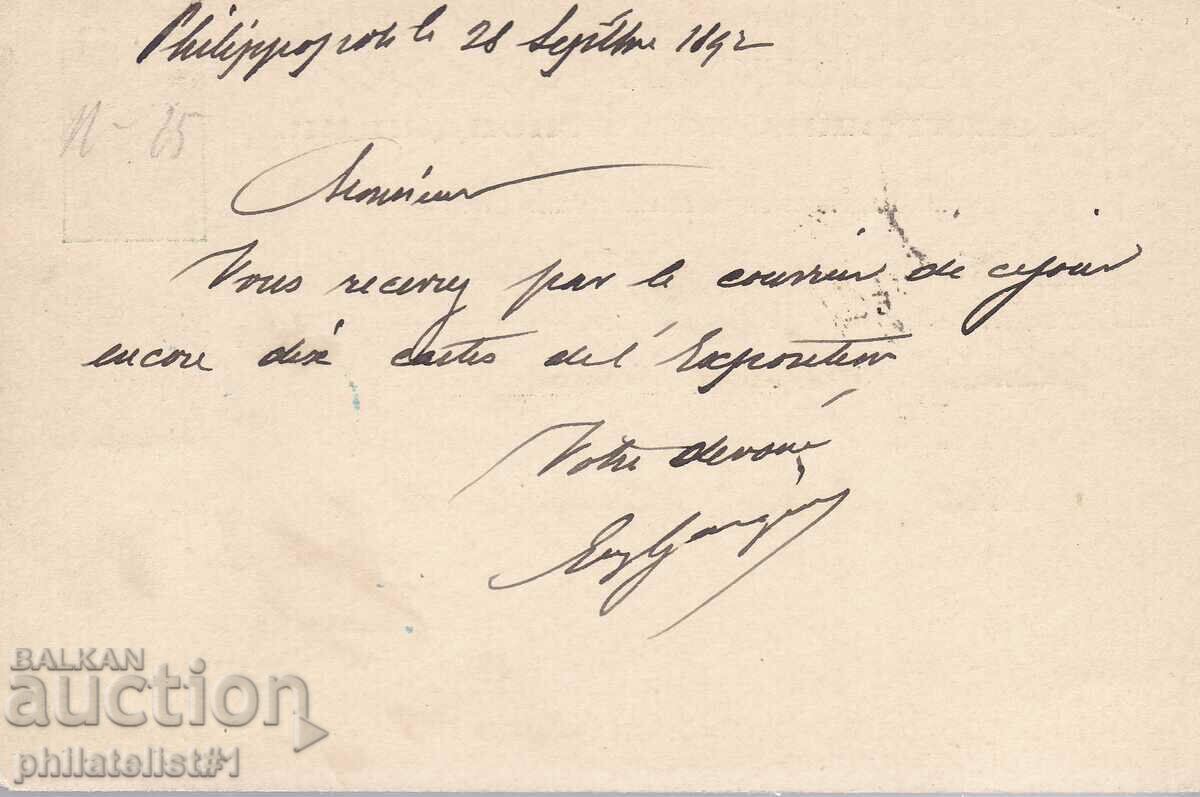 Philippopoli le 28 Septbre 1892
11 - 25
Monsieur
Vous recevrez par le courrier de ce jour
encore dix cartes de l'Exposition
Votre dévoué
BALKAN
auction
philatelist#1